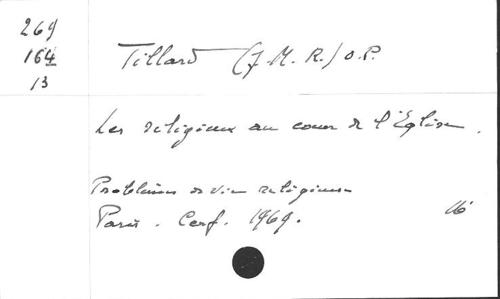 269
164
13
Tillard (J. M. R.) O.P.
Les religieux au coeur de l'Église.
Problèmes de vie religieuse
Paris. Cerf. 1969.
16